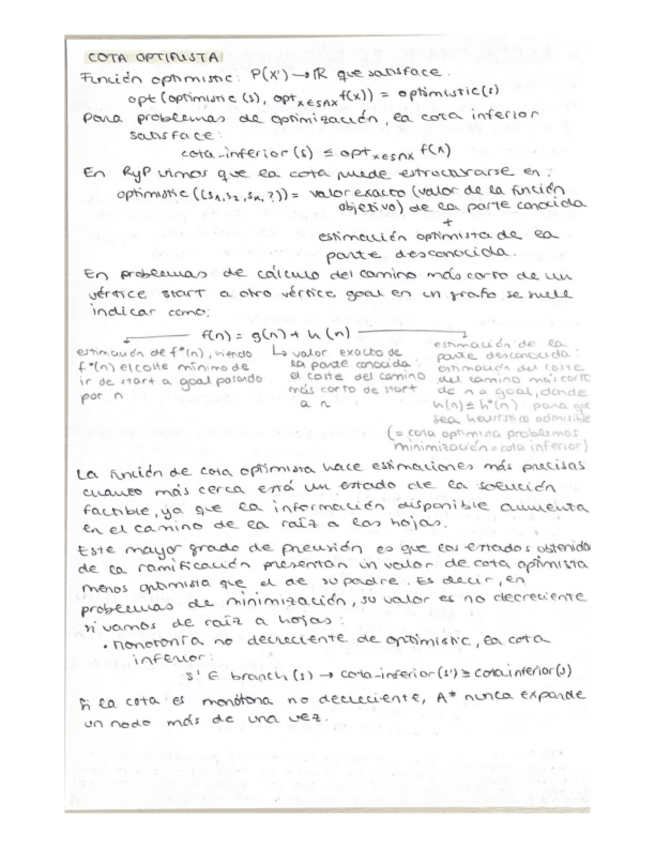 COTA OPTIMISTA
Función optimistic: P(X') → ℝ que satisface.
opt (optimistic (s), opt x∈S∩X f(x)) = optimistic(s)
Para problemas de optimización, la cota inferior
satisface:
cota_inferior (s) ≤ opt x∈S∩X f(x)
En RyP vimos que la cota puede estructurarse en:
optimistic ((s1,s2,sk,?)) = valor exacto (valor de la función
objetivo) de la parte conocida
+
estimación optimista de la
parte desconocida.
En problemas de cálculo del camino más corto de un
vértice start a otro vértice goal en un grafo se suele
indicar como:
f(n) = g(n) + h(n)
estimación de f*(n), siendo
f*(n) el coste mínimo de
ir de start a goal pasando
por n
↳ valor exacto de
la parte conocida:
el coste del camino
más corto de start
a n
estimación de la
parte desconocida:
estimación del coste
del camino más corto
de n a goal, donde
h(n) ≤ h*(n) para que
sea heurístico admisible
(= cota optimista problemas
minimización = cota inferior)
La función de cota optimista hace estimaciones más precisas
cuanto más cerca está un estado de la solución
factible, ya que la información disponible aumenta
en el camino de la raíz a las hojas.
Este mayor grado de precisión es que los estados obtenido
de la ramificación presentan un valor de cota optimista
menos optimista que el de su padre. Es decir, en
problemas de minimización, su valor es no decreciente
si vamos de raíz a hojas:
• Monotonía no decreciente de optimistic, la cota
inferior:
s' ∈ branch (s) → cota-inferior (s') ≥ cota inferior (s)
Si la cota es monótona no decreciente, A* nunca expande
un nodo más de una vez.